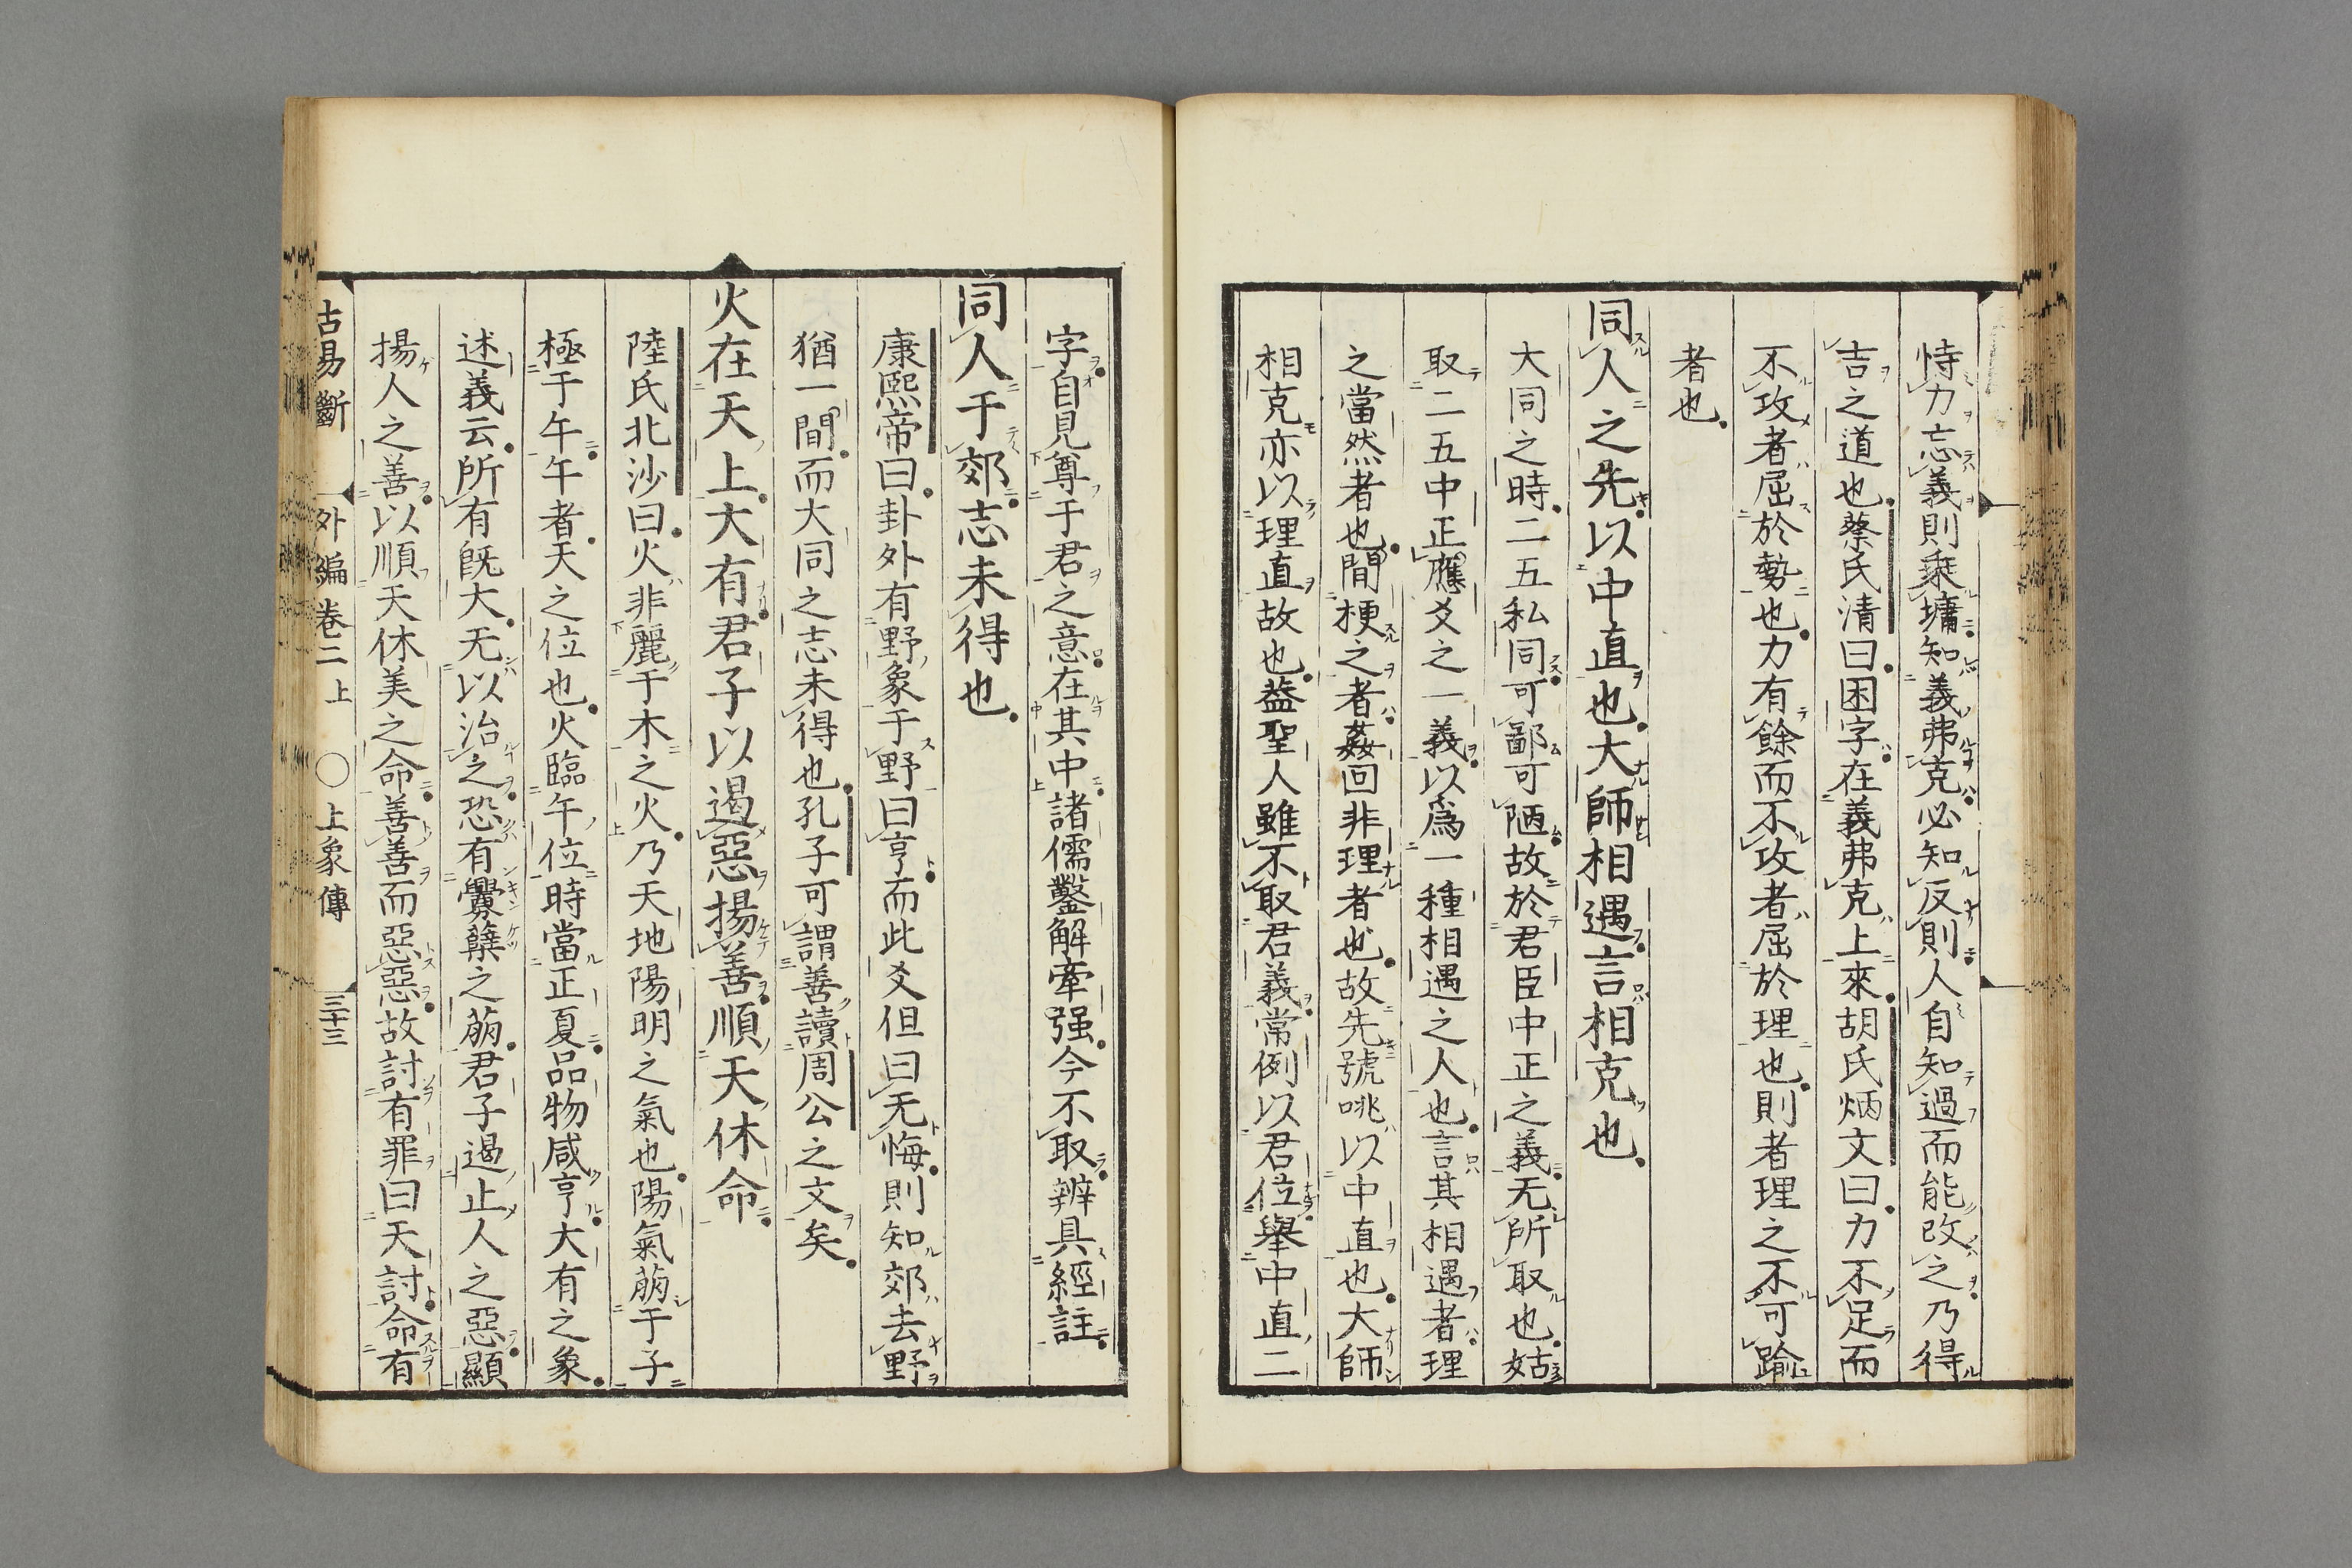 恃力忘義則乘墉知義弗克必知反則人自知過而能改之乃得
吉之道也蔡氏清曰困字在義弗克上來胡氏炳文曰力不足而
不攻者屈於勢也力有餘而不攻者屈於理也則者理之不可踰
者也
同人之先以中直也大師相遇言相克也
大同之時二五私同可鄙可陋故於君臣中正之義无所取也姑
取二五中正應爻之一義以爲一種相遇之人也言其相遇者理
之當然者也間梗之者姦回非理者也故先號咷以中直也大師
相克亦以理直故也蓋聖人雖不取君義常例以君位舉中直二
字自見尊于君之意在其中諸儒鑿解牽强今不取辨具經註
同人于郊志未得也
康熙帝曰卦外有野象于野曰亨而此爻但曰无悔則知郊去野
猶一間而大同之志未得也孔子可謂善讀周公之文矣
火在天上大有君子以遏惡揚善順天休命
陸氏北沙曰火非麗于木之火乃天地陽明之氣也陽氣萠于子
極于午午者天之位也火臨午位時當正夏品物咸亨大有之象
述義云所有既大无以治之恐有釁蘖之萠君子遏止人之惡顯
揚人之善以順天休美之命善善而惡惡故討有罪曰天討命有
古易斷 外編卷二上 〇上象傳 三十三